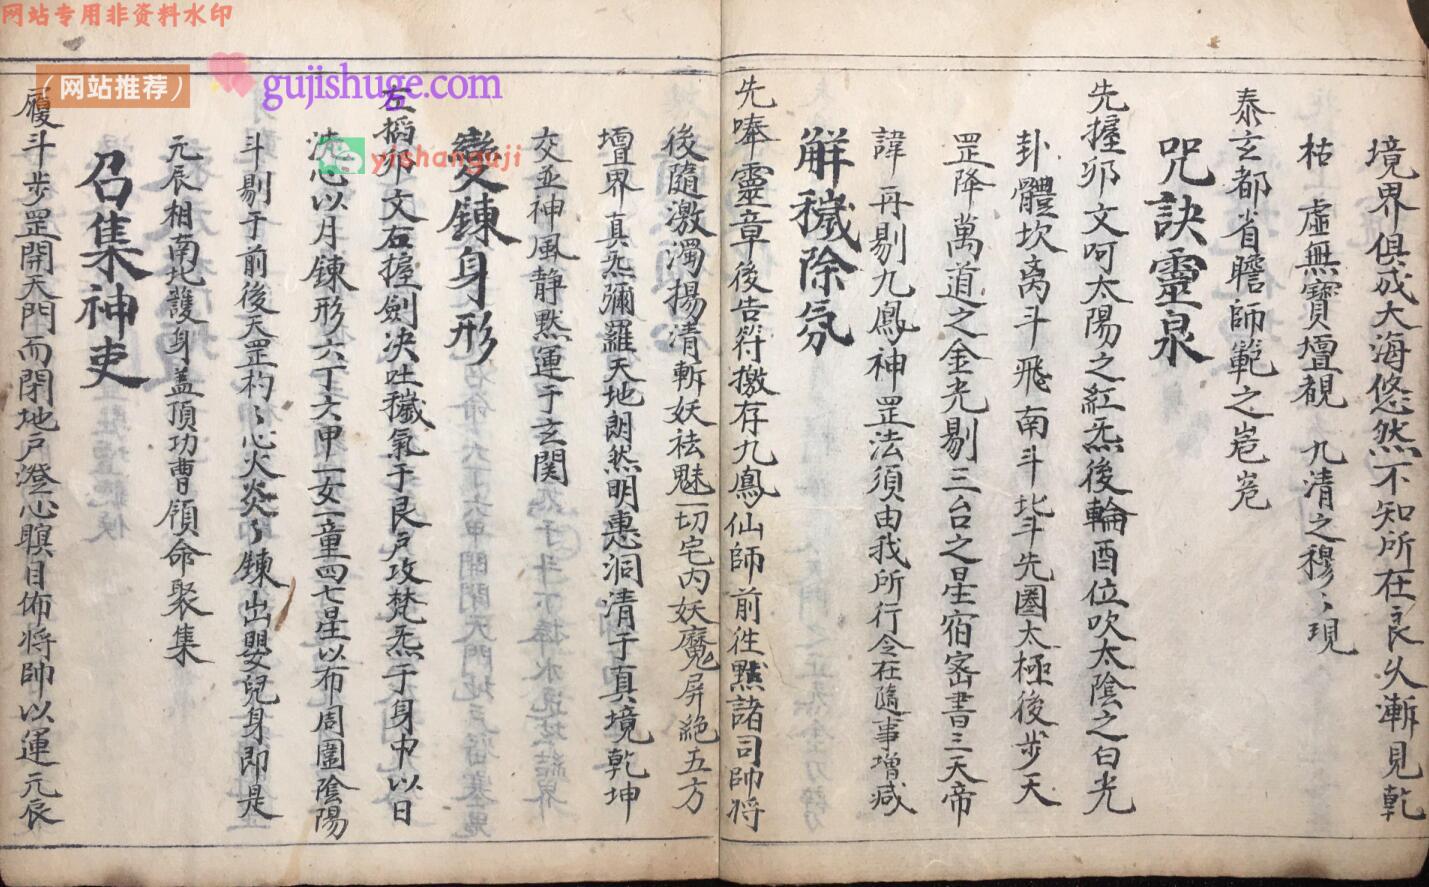 网站专用非资料水印
(网站推荐)
gujishuge.com
yishanguji
境界俱成大海悠然不知所在良久漸見乾
枯 虛無寶壇覌 九清之穆〻現
泰玄都省瞻師範之嵬嵬
咒訣靈泉
先握夘文呵太陽之紅炁後輪酉位吹太陰之白光
卦體坎离斗飛南斗北斗先圏太極後步天
罡降萬道之金光剔三台之星宿宻書三天帝
諱再剔九鳳神罡法須由我所行令在隨事增减
觧穢除氛
先唪靈章後告符檄存九鳳仙師前徃黙諸司帥將
後隨激濁揚清斬妖祛魅一切宅内妖魔屏絶五方
壇界真炁彌羅天地朗然明惠洞清于真境乾坤
交並神風静黙運于玄関
變鍊身形
左搯夘文右握劍决吐穢氣于艮戶攻梵炁于身中以日
洗心以月鍊形六丁六甲一女一童四七星以布周圍陰陽
斗剔于前後天罡杓〻心火炎〻鍊出嬰兒身即是
元辰相南北護身盖頂功曹領命聚集
召集神吏
履斗步罡開天門而閉地戶澄心瞑目佈将帥以運元辰